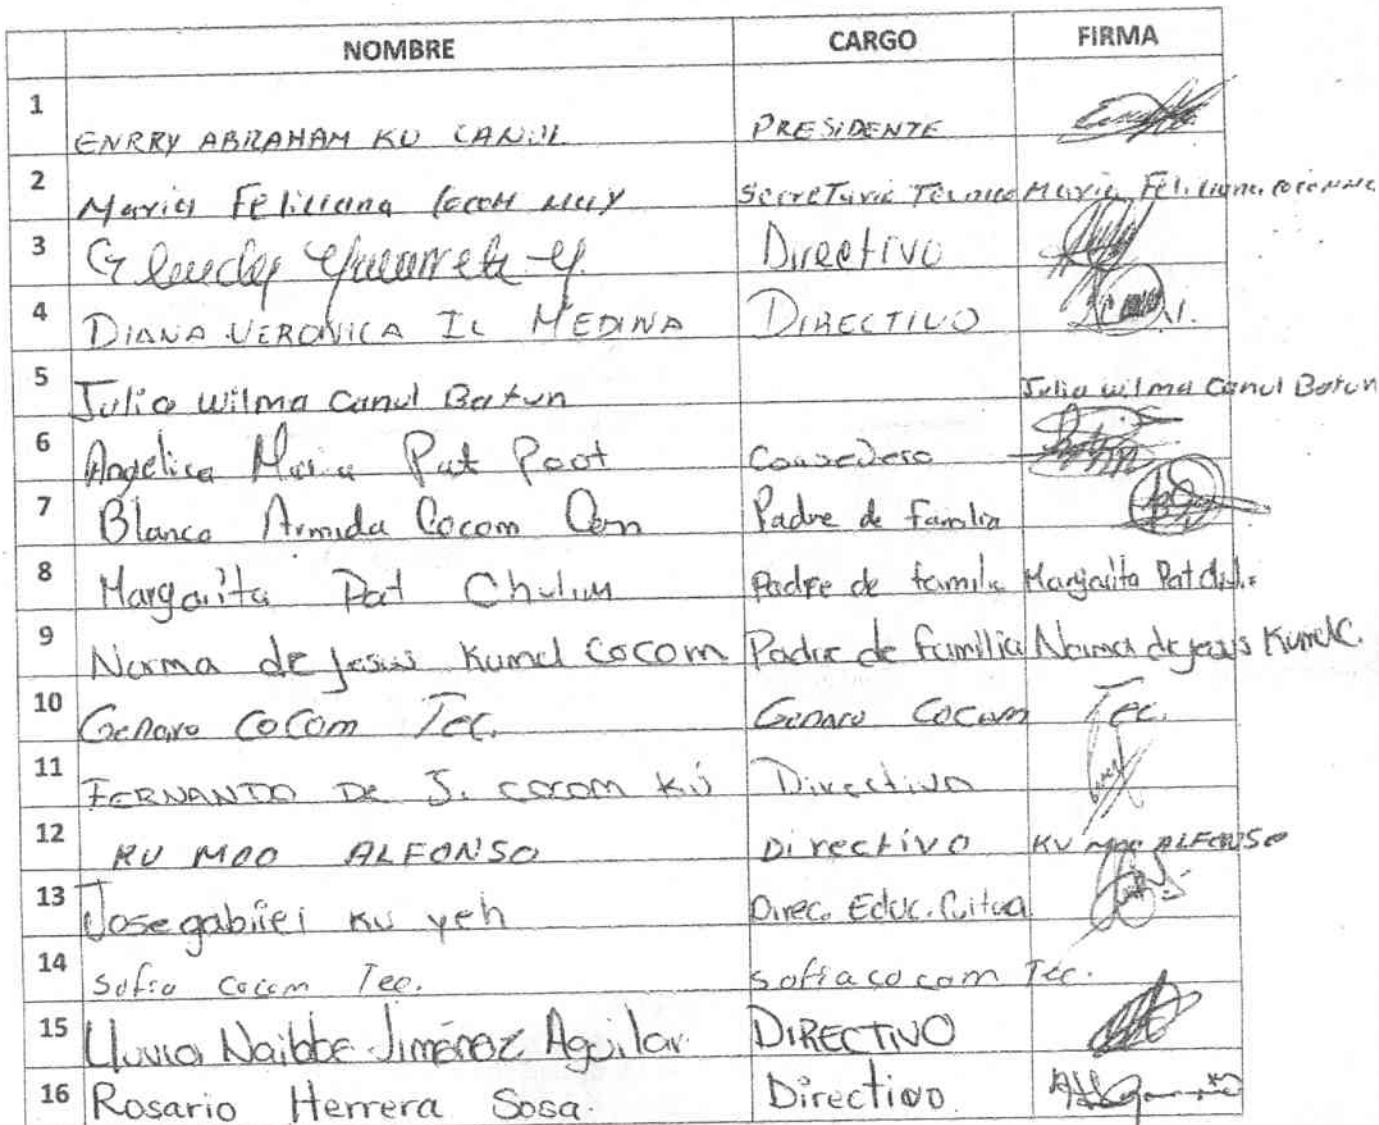 NOMBRE CARGO FIRMA
1 ENRRY ABRAHAM KU CANUL PRESIDENTE
2 Maria Feliciana Secretaria Tecnico Maria Feliciana
3 Directivo
4 DIANA VERONICA IC MEDINA DIRECTIVO
5 Julia Wilma Canul Batun Julia Wilma Canul Batun
6 Angelica Maria Pat Poot
7 Blanca Armida Cocom Padre de familia
8 Margarita Pat Chulim Padre de familia Margarita Pat
9 Norma de Jesus Kumul Cocom Padre de familia Norma de Jesus Kumul C.
10 Genaro Cocom Tec. Genaro Cocom Tec.
11 FERNANDO DE J. COCOM KÚ Directivo
12 KU MOO ALFONSO Directivo KU MOO ALFONSO
13 Jose gabriel Ku yeh Direc. Educ.
14 Sofia Cocom Tec. sofia cocom Tec.
15 Lluvia Naibbe Jiménez Aguilar. DIRECTIVO
16 Rosario Herrera Sosa. Directivo.